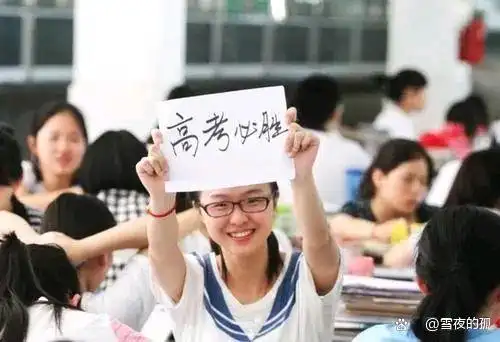 高考必胜
@雪夜的孤